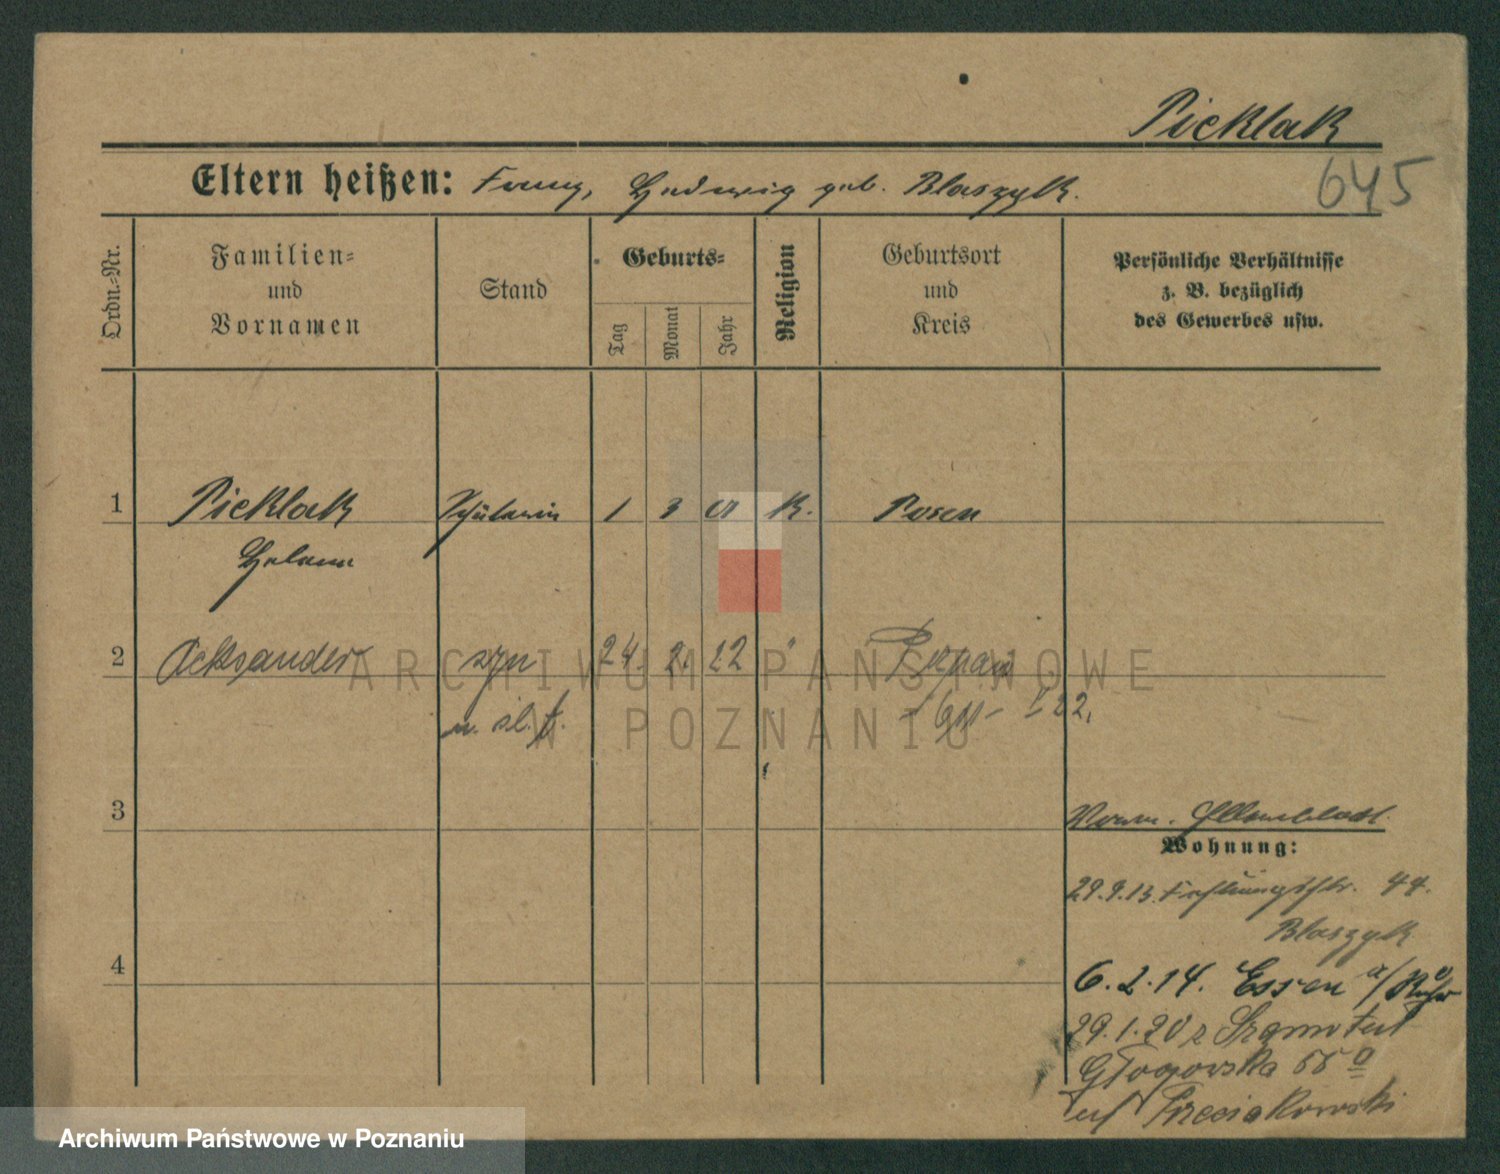 Pieklak
645
Eltern heißen: Franz, Hedwig geb. Blaszyk.
Ordn.-Nr.
Familien-
und
Vornamen
Stand
Geburts-
Tag
Monat
Jahr
Religion
Geburtsort
und
Kreis
Persönliche Verhältnisse
z. B. bezüglich
des Gewerbes usw.
1 Pieklak Schülerin 1 3 01 K. Posen
Helene
2 Aleksander syn 24. 2. 22 " Poznań
n. śl. I 22.
3
Vorm. Elternblatt.
Wohnung:
29.9.13. 44.
Blaszyk
4
6.2.14. Essen a/Ruhr
29.1.20 z Szamotuł
Głogowska
Trzeciakowski
ARCHIWUM PAŃSTWOWE
W POZNANIU
Archiwum Państwowe w Poznaniu